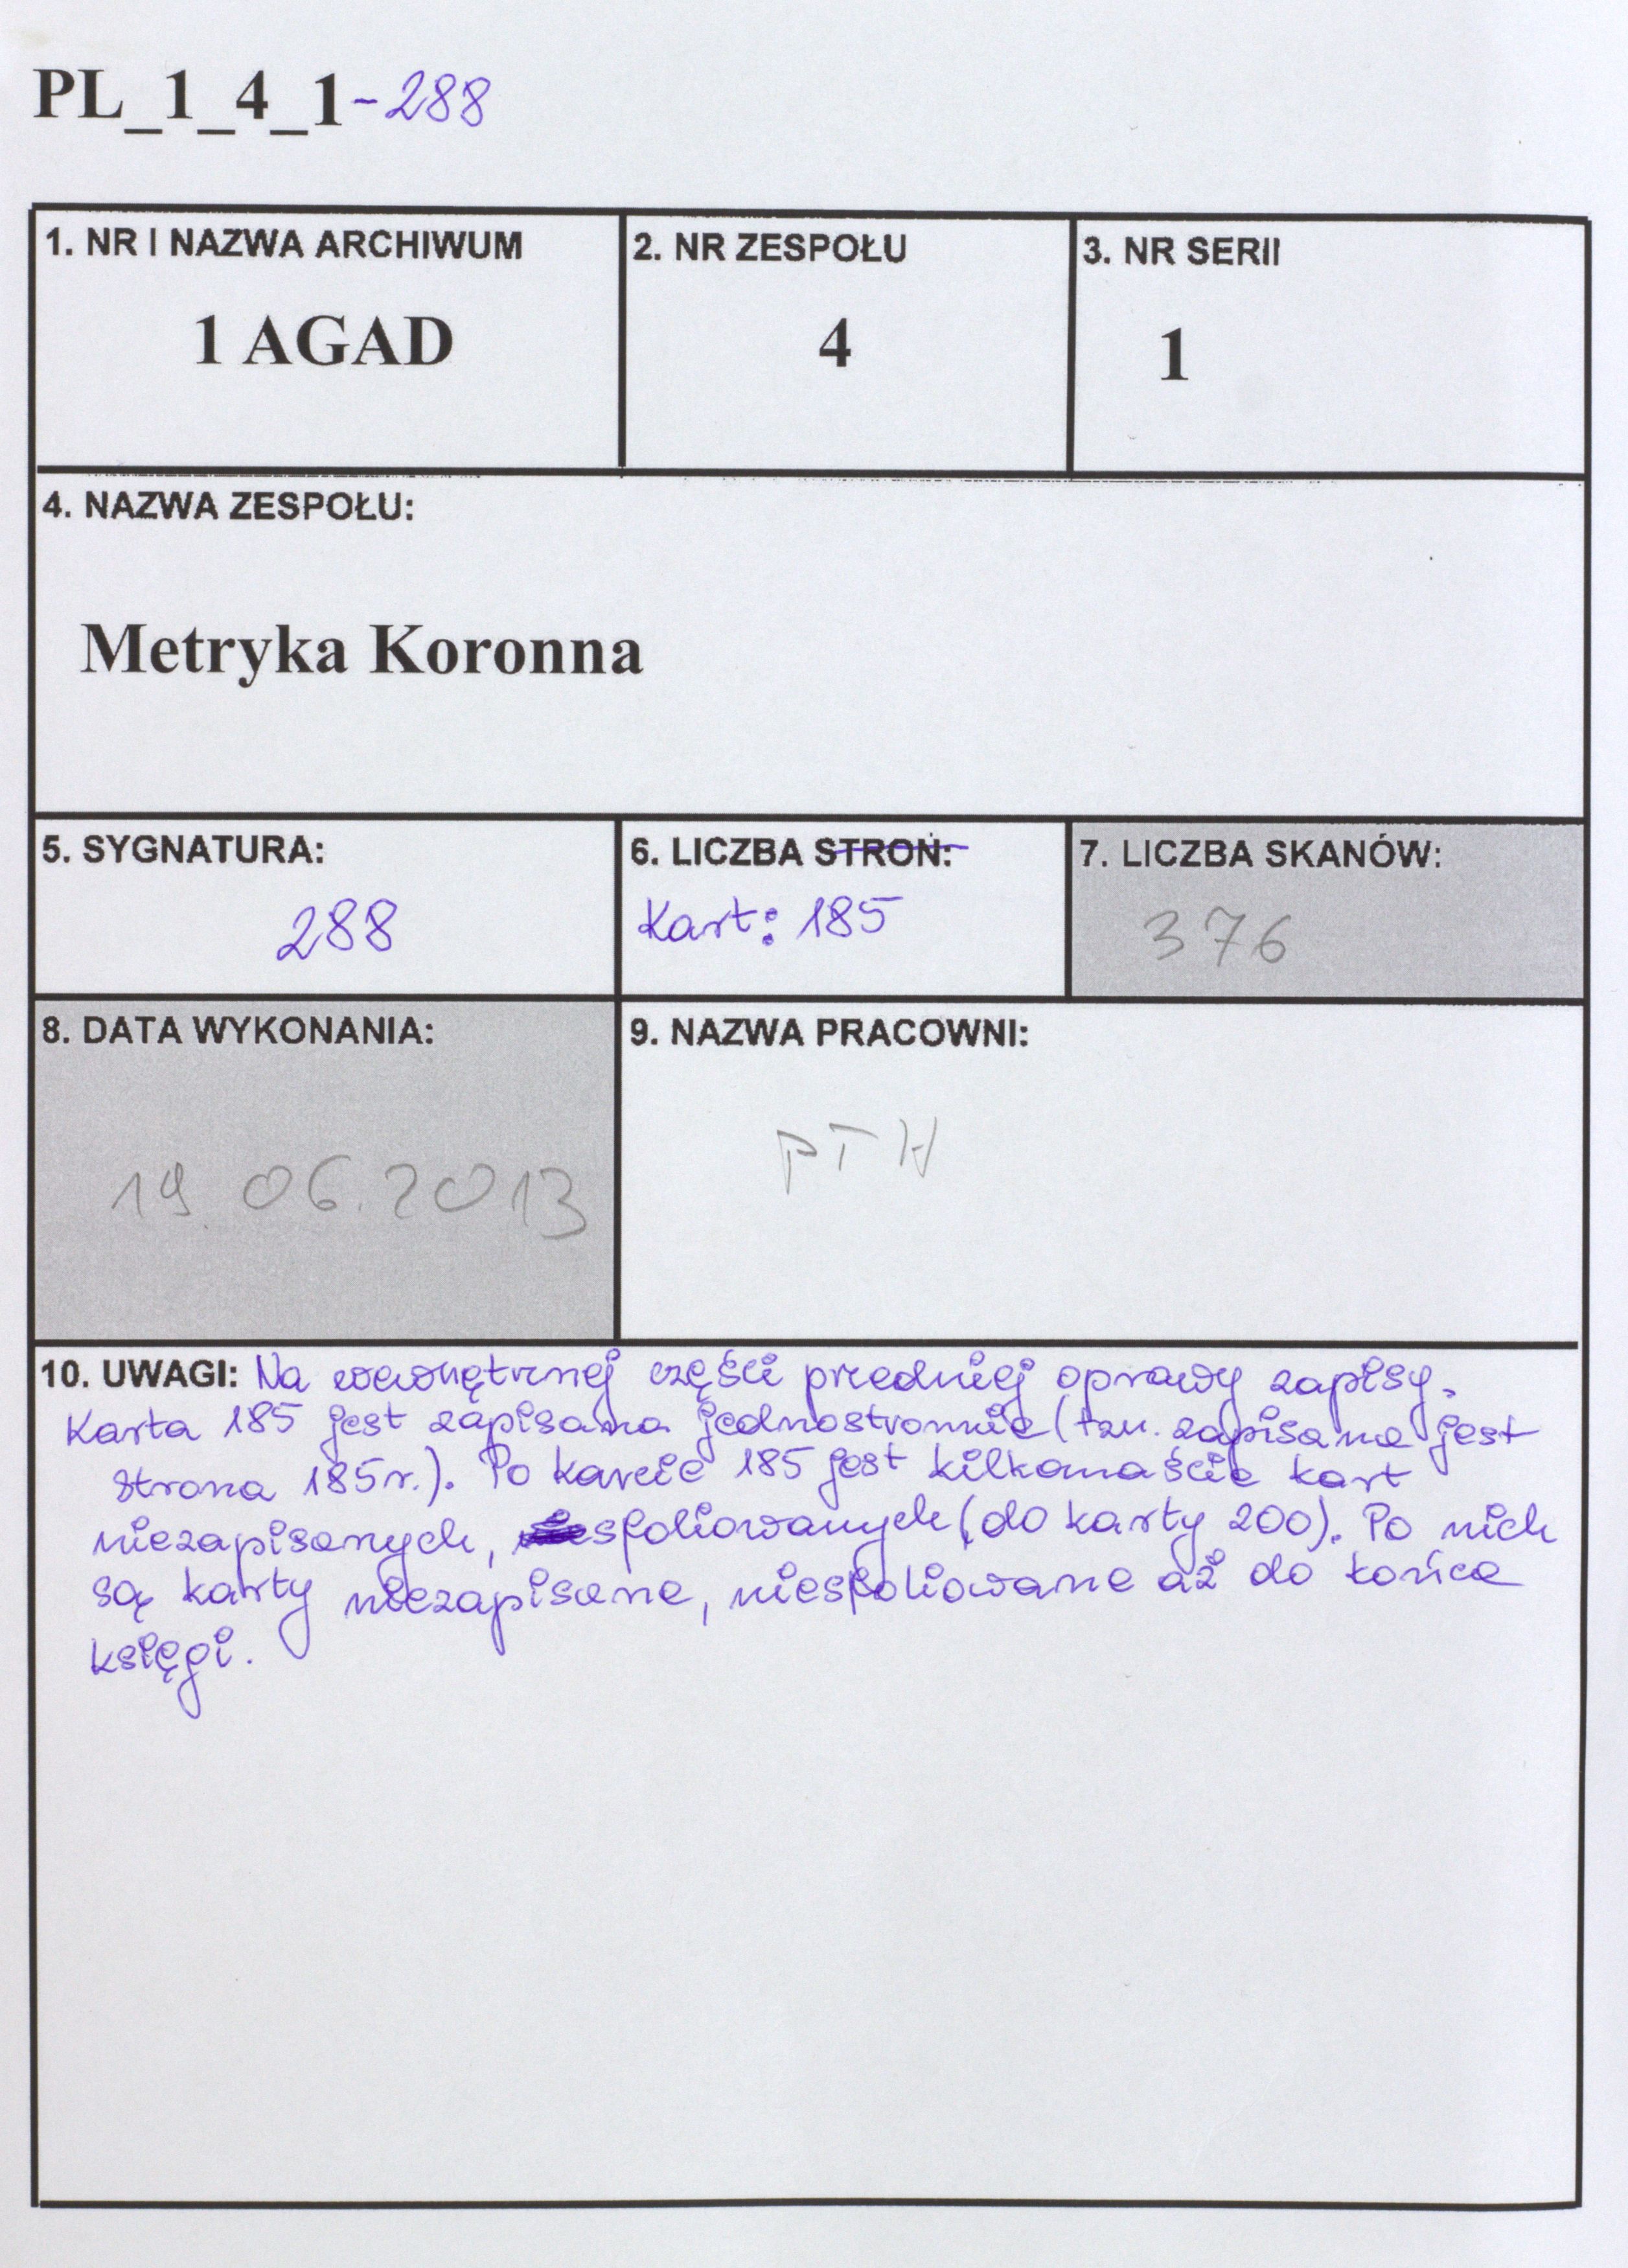 PL_1_4_1-288
1. NR I NAZWA ARCHIWUM
1 AGAD
2. NR ZESPOŁU
4
3. NR SERII
1
4. NAZWA ZESPOŁU:
Metryka Koronna
5. SYGNATURA:
288
6. LICZBA STRON:
Kart: 185
7. LICZBA SKANÓW:
376
8. DATA WYKONANIA:
19.06.2013
9. NAZWA PRACOWNI:
PTH
10. UWAGI: Na wewnętrznej części przedniej oprawy zapisy.
Karta 185 jest zapisana jednostronnie (tzn. zapisana jest
strona 185r.). Po karcie 185 jest kilkanaście kart
niezapisanych, sfoliowanych (do karty 200). Po nich
są karty niezapisane, niesfoliowane aż do końca
księgi.